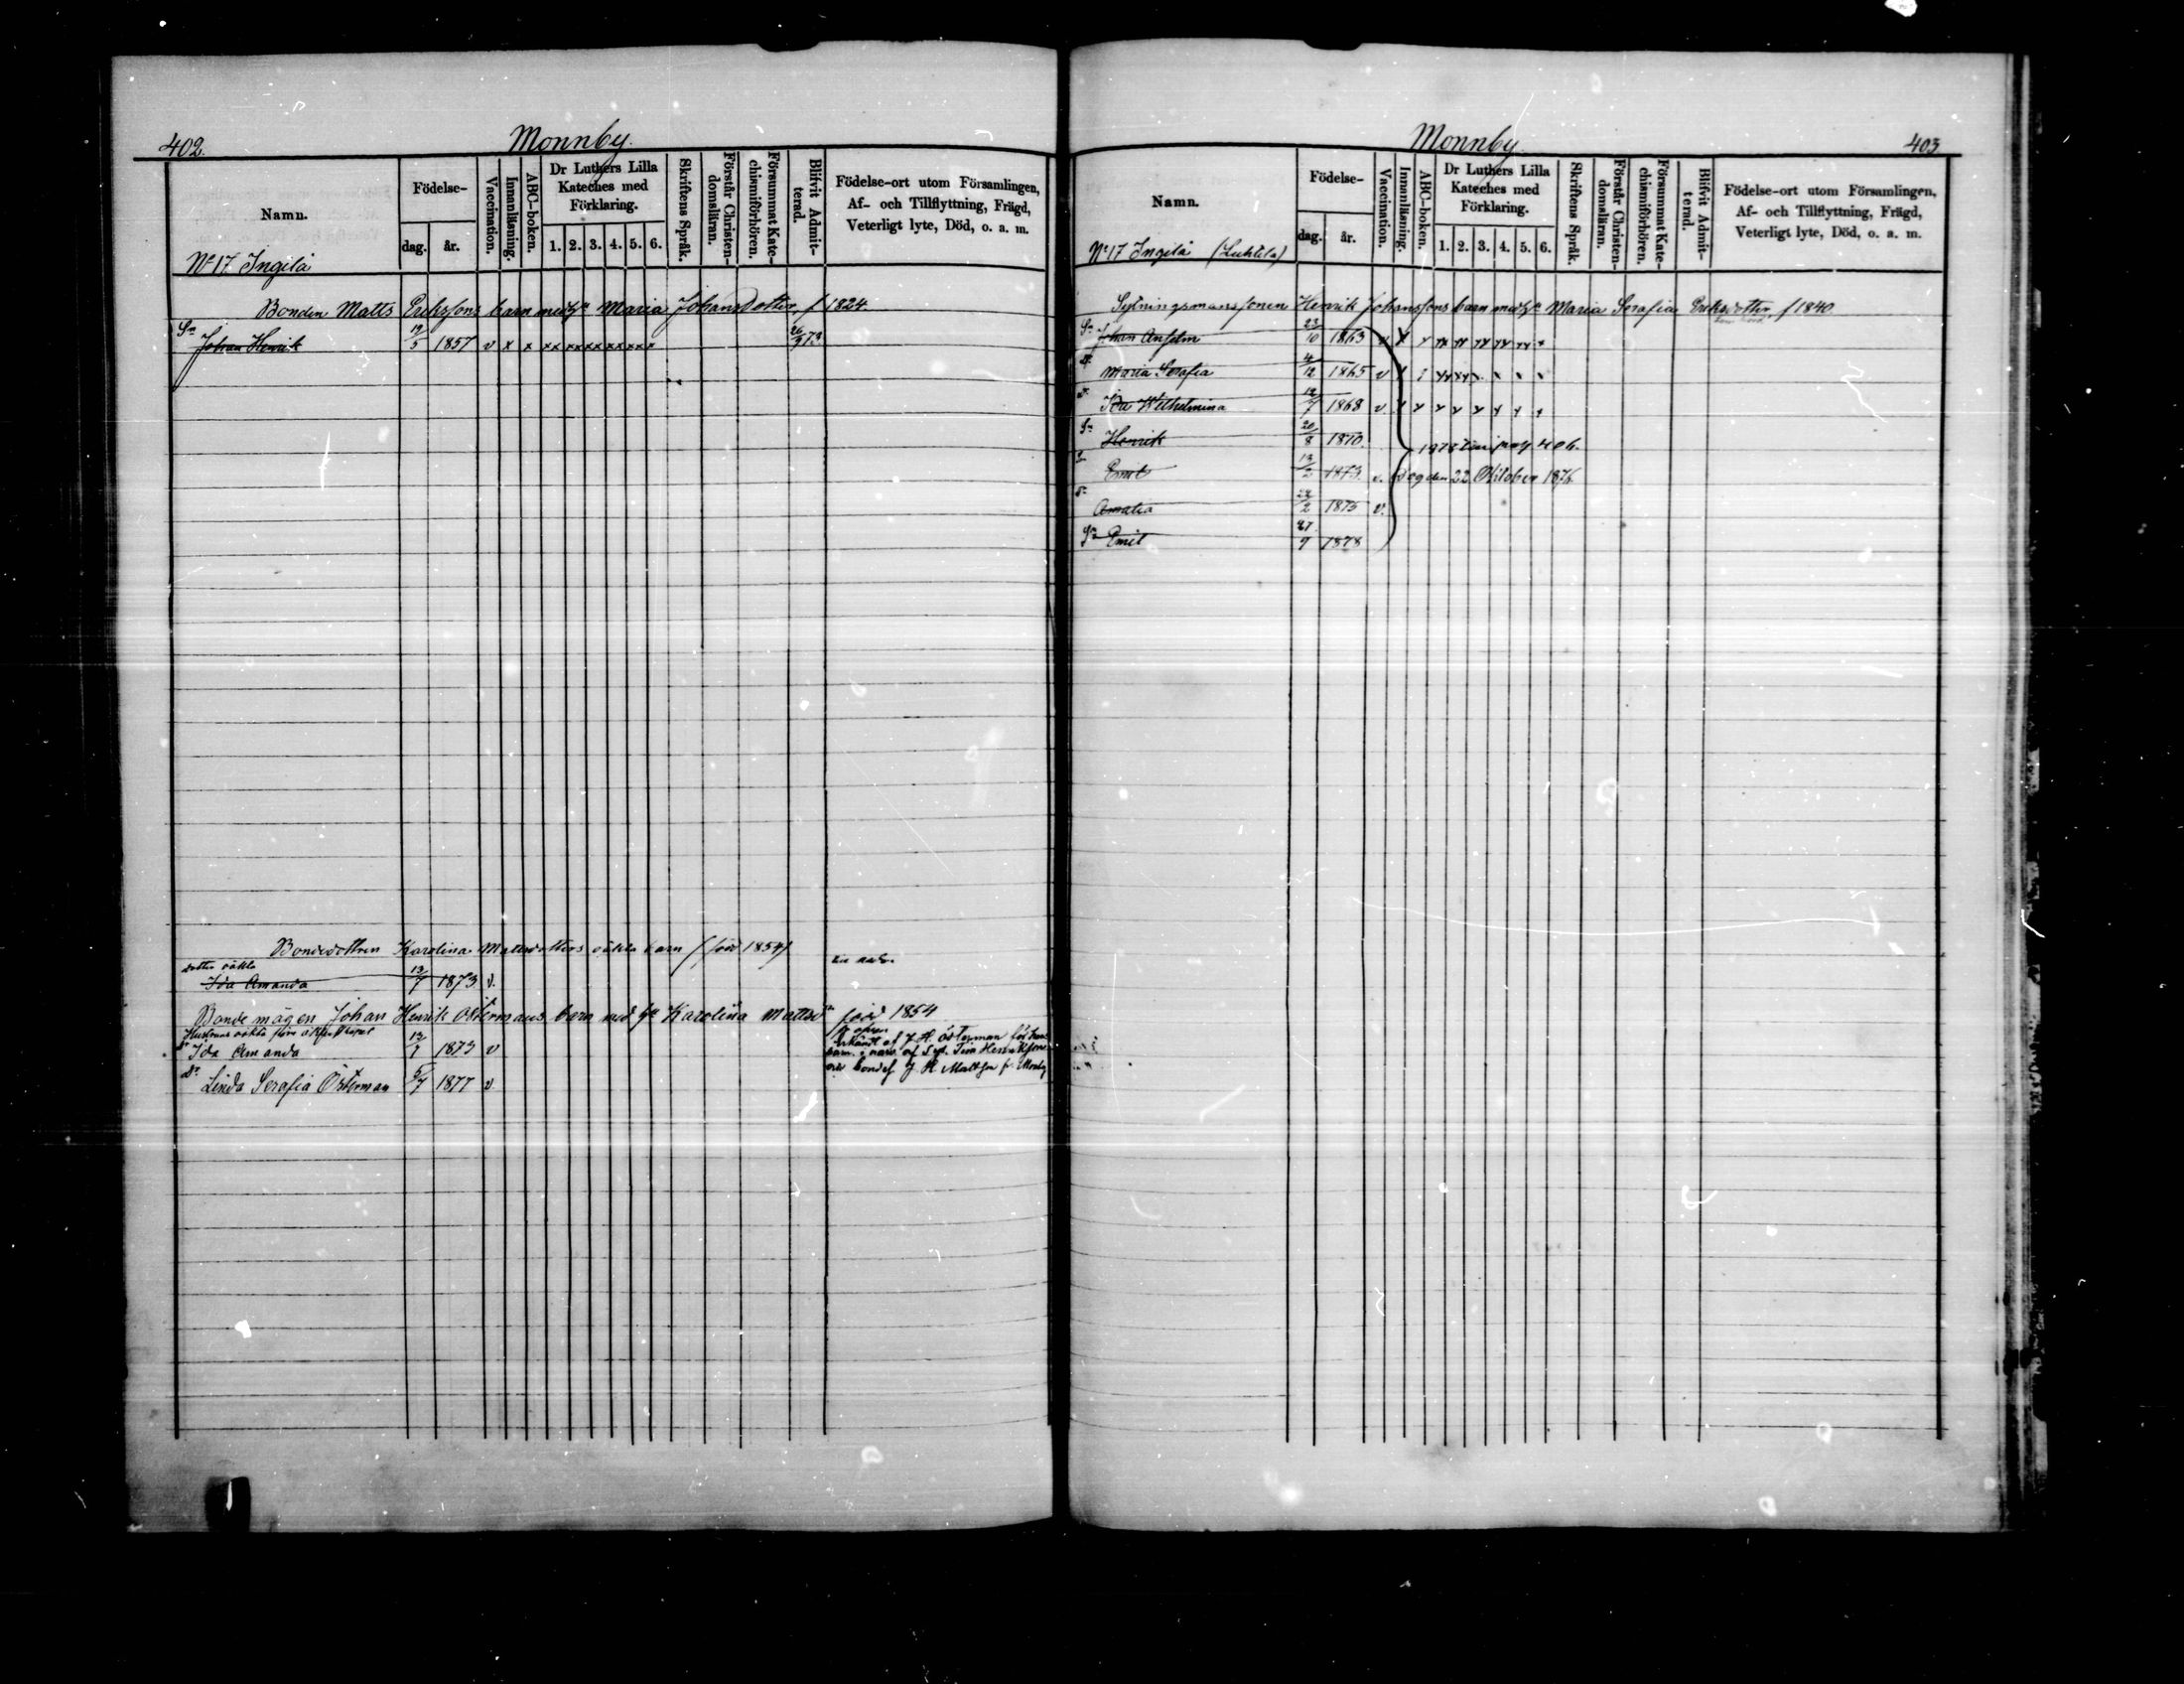 402.
Monnby.
Namn.
Födelse-
dag. år.
Vaccination.
Innanläsning.
ABC-boken.
Dr Luthers Lilla
Kateches med
Förklaring.
1. 2. 3. 4. 5. 6.
Skriftens Språk.
Förstår Christen-
domsläran.
Försummat Kate-
chismiförhören.
Blifvit Admit-
terad.
Födelse-ort utom Församlingen,
Af- och Tillflyttning, Frägd,
Veterligt lyte, Död, o. a. m.
No 17 Ingelä
Bonden Matts Erikssons barn med hu Maria Johansdotter, f 1824.
Sn Johan Henrik 5 1857 v x x xx xx xx xx xx x
Bondedottren Karolina Mattsdotters oäkta barn (född 1854)
dotter oäkta
Ida Amanda 13/7 1873 v.
Bondemågen Johan Henrik Östermans barn med hu Karolina Mattsdr född 1854
Dr Ida Amanda 13/7 1873 v
erkändt af J. H. Österman för hans
Dr Linda Serafia Österman 5/7 1877 v.
Monnby
403
Namn.
Födelse-
dag. år.
Vaccination.
Innanläsning.
ABC-boken.
Dr Luthers Lilla
Kateches med
Förklaring.
1. 2. 3. 4. 5. 6.
Skriftens Språk.
Förstår Christen-
domsläran.
Försummat Kate-
chismiförhören.
Blifvit Admit-
terad.
Födelse-ort utom Församlingen,
Af- och Tillflyttning, Frägd,
Veterligt lyte, Död, o. a. m.
No 17 Ingelä
Sytningsmanssonen Henrik Johanssons barn med hu Maria Serafia Eriksdotter, f 1840
Sn Johan Anselm 23/10 1863
Dr Maria Serafia 4/12 1865 v
Dr Ida Wilhelmina 12/7 1868 v.
Sn Henrik 20/8 1870.
1878 till pag 406.
Sn Emil 13/2 1873. v. Dog den 22 Oktober 1876
Dr Amalia 2 1875 v.
Sn Emil 27/9 1878